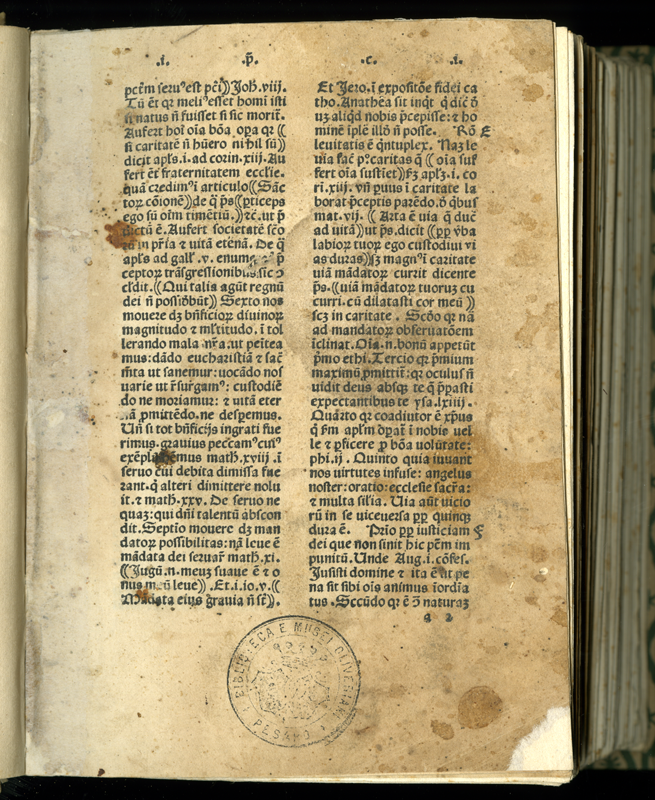 .i. .p̄. .c. .i.
pctm̄ seruꝰ est pcī)) Joh̄. viij.
Tū ēt qr meliꝰ esset homī isti
si natus n̄ fuisset si sic morit̄.
Aufert hoī oīa bōa oꝑa qr ((
si caritatē n̄ hūero nihil sū))
dicit apl̄s .i. ad corin. xiij. Au
fert ēt fraternitatem eccl̄ie.
quā credimꝰ ī articulo ((Sāc
toꝝ cōionē)) de q̄ p̄s ((ꝑticeps
ego sū oīm timētiū.)) ⁊c̄. ut p̄
dictū ē. Aufert societatē sc̄o
in pr̄ia ⁊ uitā etēnā. De q̄
apl̄s ad gall̄ .v. enum
ceptoꝝ trāsgressionibus sic
cl̄dit. ((Qui talia agūt regnū
dei n̄ possidēbūt)) Sexto nos
mouere dꝫ bn̄ficioꝝ diuinoꝝ
magnitudo ⁊ ml̄titudo. ī tol
lerando mala nr̄a: ut peītea
mus: dādo eucharistiā ⁊ sac̄
mēta ut sanemur: uocādo nos
uarie ut r̄surgamꝰ: custodiē
do ne moriamur: ⁊ uitā eter
ꝓmittēdo. ne despemus.
Un̄ si tot bn̄ficijs ingrati fue
rimus. grauius peccamꝰ cuiꝰ
exēplū emus math̄. xviij. ī
seruo cui debita dimissa fue
rant. q̄ alteri dimittere nolu
it. ⁊ math̄. xxv. De seruo ne
quaꝫ: qui dn̄i talentū abscon
dit. Septīo mouere dꝫ man
datoꝝ possibilitas: nā leue ē
mādata dei seruar̄ math̄. xi.
((Jugū .n. meuꝫ suaue ē ⁊ o
nus leue)) . Et .i. io. v. ((
Mādata eius grauia n̄ st̄)).
Et Jero. ī expositōe fidei ca
tho. Anathēa sit inqt̄ q̄ dic̄ d̄
uꝫ aliqd nobis p̄cepisse: ⁊ ho
minē iplē illd̄ n̄ posse. Rō E
leuitatis ē q̄ntuplex. Naꝫ le
uia fac̄ pº caritas q̄ (( oīa suf
fert oīa sustiet)) s̄ꝫ apl̄ꝫ .i. co
ri. xiij. vn̄ ꝑuus ī caritate la
borat p̄ceptis parēdo. d̄ qbus
mat. vij. (( Arta ē uia q̄ duc̄
ad uitā)) ut p̄s. dicit ((ꝓꝑ v̄ba
labioꝝ tuoꝝ ego custodiui vi
as duras)) sꝫ magnꝰ ī caritate
uiā mādatoꝝ currit dicente
p̄s. ((uiā mādatoꝝ tuoruꝫ cu
curri. cū dilatasti cor meū ))
scꝫ in caritate . Scd̄o qr nā
ad mandatoꝝ obseruatōem
īclinat. Oīa .n. bonū appetūt
p̄mo ethi. Tercio qr p̄mium
maximū ꝓmittit̄: qr oculus n̄
uidit deus absqꝫ te q̄ p̄ꝑasti
expectantibus te ysa. lxiiij.
Quārto qr coadiutor ē xp̄us
q̄ s̄m apl̄m oꝑat̄ ī nobis uel
le ⁊ ꝑficere ꝓ bōa volūtate:
phi. ij. Quinto quia iuuant
nos virtutes infuse: angelus
noster: oratio: ecclesie sacr̄a:
⁊ multa sil̄ia. Uia aūt vicio
rū in se viceuersa ꝓꝑ quinqꝫ
dura ē. Prīo ꝓꝑ iusticiam §
dei que non sinit hic pc̄m im
punitū. Unde Aug. i. cōfes.
Jusisti domine ⁊ ita ē ut pe
na sit sibi oīs animus īordīa
tus. Sccūdo qr ē ꝯ naturaꝫ
a 2
BIBLIOTECA E MUSEI OLIVERIANI
PESARO